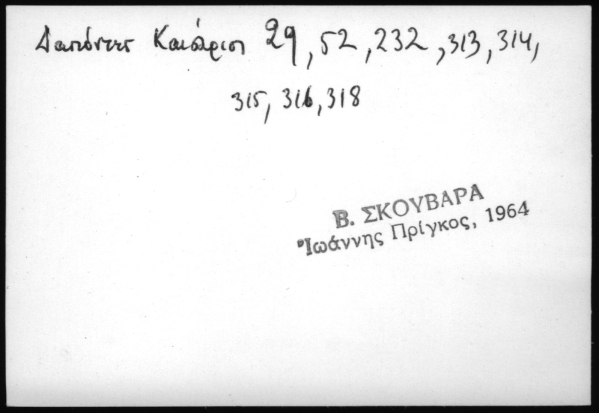 Δαπόντες Καισάριος 29, 52, 232, 313, 314,
315, 316, 318
Β. ΣΚΟΥΒΑΡΑ
Ἰωάννης Πρίγκος, 1964